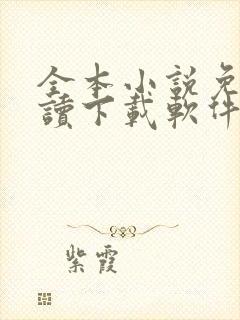 全本小說免
讀下載軟件
紫霞